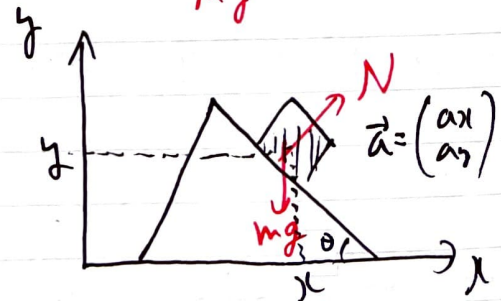 y
N
y
a⃗ = (ax
ay)
mg
θ
x
x